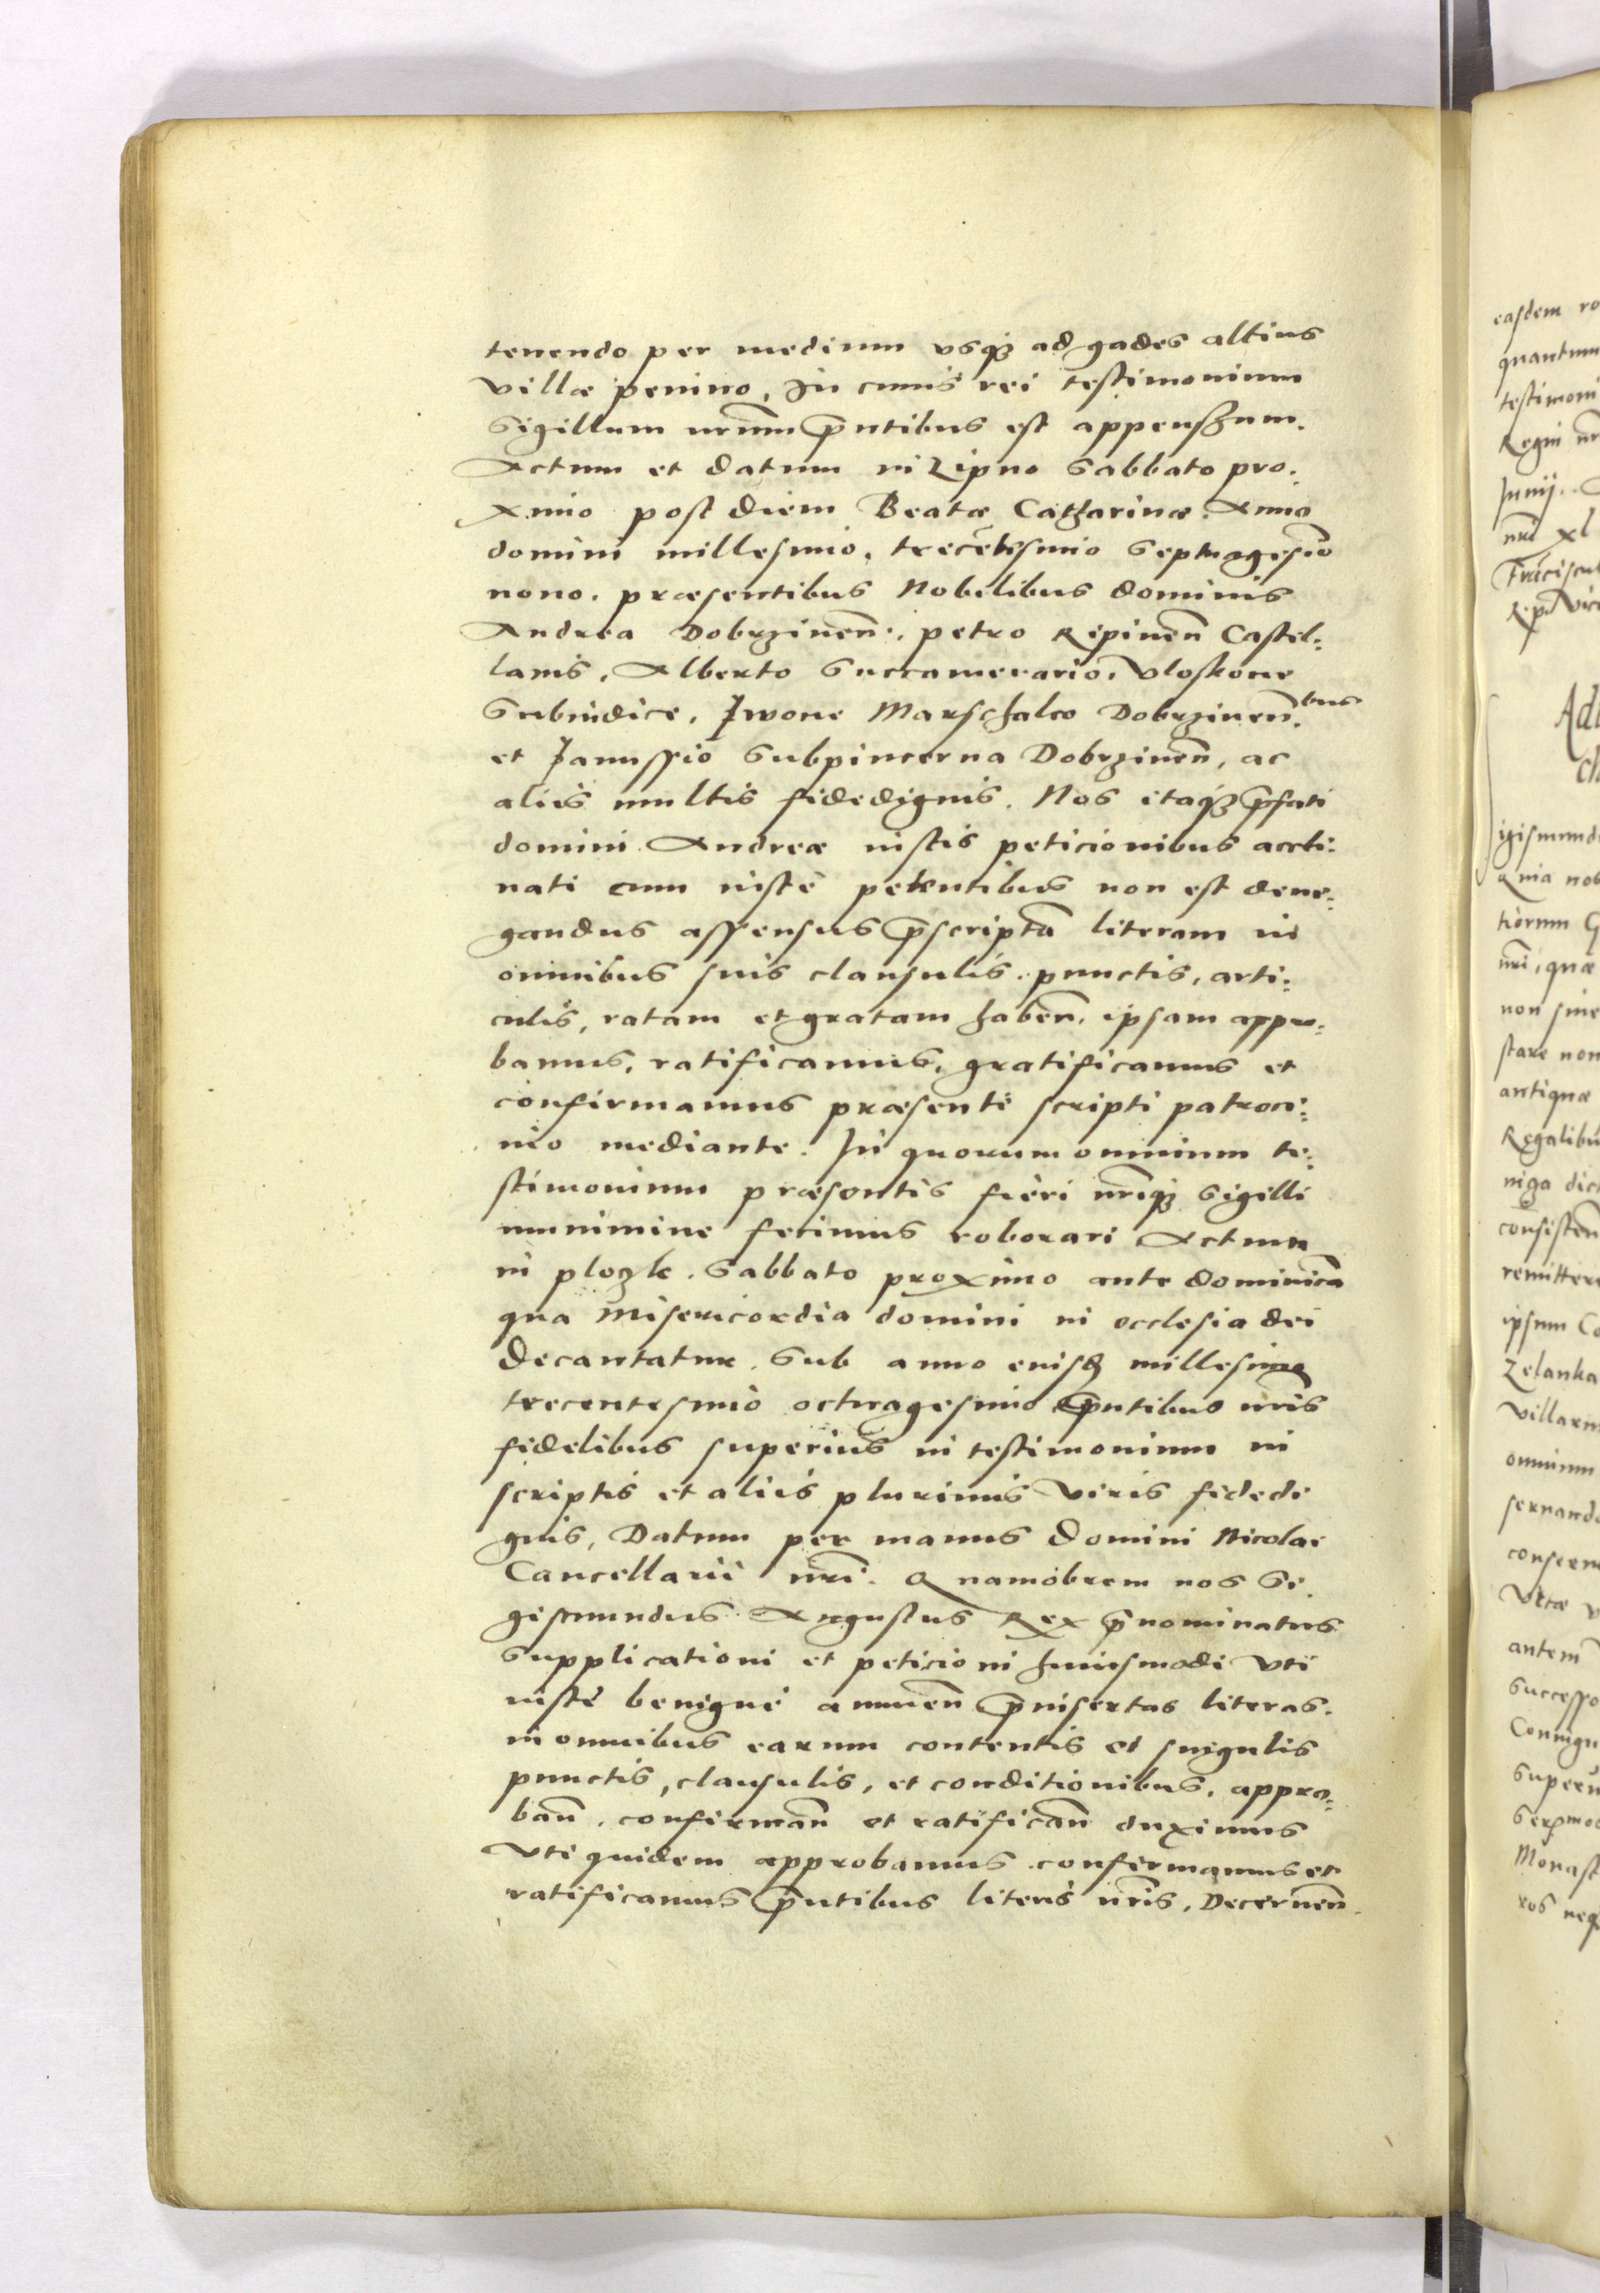 tenendo per medium vsq3 ad gades altius
villæ penino, In cuius rei testimonium
Sigillum nrum p̄ntibus est appensum.
Actum et datum in Lipno Sabbato pro:
ximo post diem Beatæ Catharinæ. Anno
domini millesimo, trecētisimo Septuagesio
nono. præsentibus Nobilibus dominis
Andrea Dobrzinen̄. petro Ripinen̄ Castel:
lanis, Alberto Succamerario, Vloskone
Subiudice, Iwone Marschalco Dobrzinen̄.bus
et Janussio Subpincerna Dobrzinen̄, ac
aliis multis fidedignis. Nos itaq3 p̄fati
domini Andreæ iustis peticionibus accli:
nati cum iuste petentibus non est dene:
gandus assensus p̄scriptā literam in
omnibus suis clausulis. punctis, arti:
culis, ratam et gratam haben̄. ipsam appro:
bamus, ratificamus, gratificamus et
confirmamus præsenti scripti patroci:
nio mediante. In quorum omnium te:
stimonium præsentis fieri nr̄iq3 Sigilli
munimine fecimus roborari Actum
in ploczk. Sabbato proximo ante dominicā
qua Misericordia domini in ecclesia dei
decantatur. Sub anno eiusd millesimo
trecentesimo octuagesimo p̄ntibus nr̄is
fidelibus superius in testimonium in
scriptis et aliis plurimis viris fidedi
gnis, Datum per manus Domini Nicolai
Cancellarii nr̄i. Quamobrem nos Si
gismundus Augustus Rex p̄nominatus
Supplicationi et peticioni huiusmodi vti
iuste benigne annuen̄ p̄insertas literas.
in omnibus earum contentis et singulis
punctis, clausulis, et conditionibus, appro:
ban̄. confirman̄ et ratifican̄ duximus
Vti quidem approbamus confirmamus et
ratificamus p̄ntibus literis nr̄is, Decernen̄.
easdem ro
quantum
testimoni
Regni nr
Junij.
nr̄i xl
Frācisc
Ad
igismund
Quia nob
tiorum G
nr̄i, quæ
non sine
stare non
antiquæ
Regalibu
niga dict
consisten̄
remittere
ipsum Co
Zelanka
Villarum
omnium
seruando
conseru
Vitæ v
antem
Successo
Coniugu
superu
Monast
ros neq